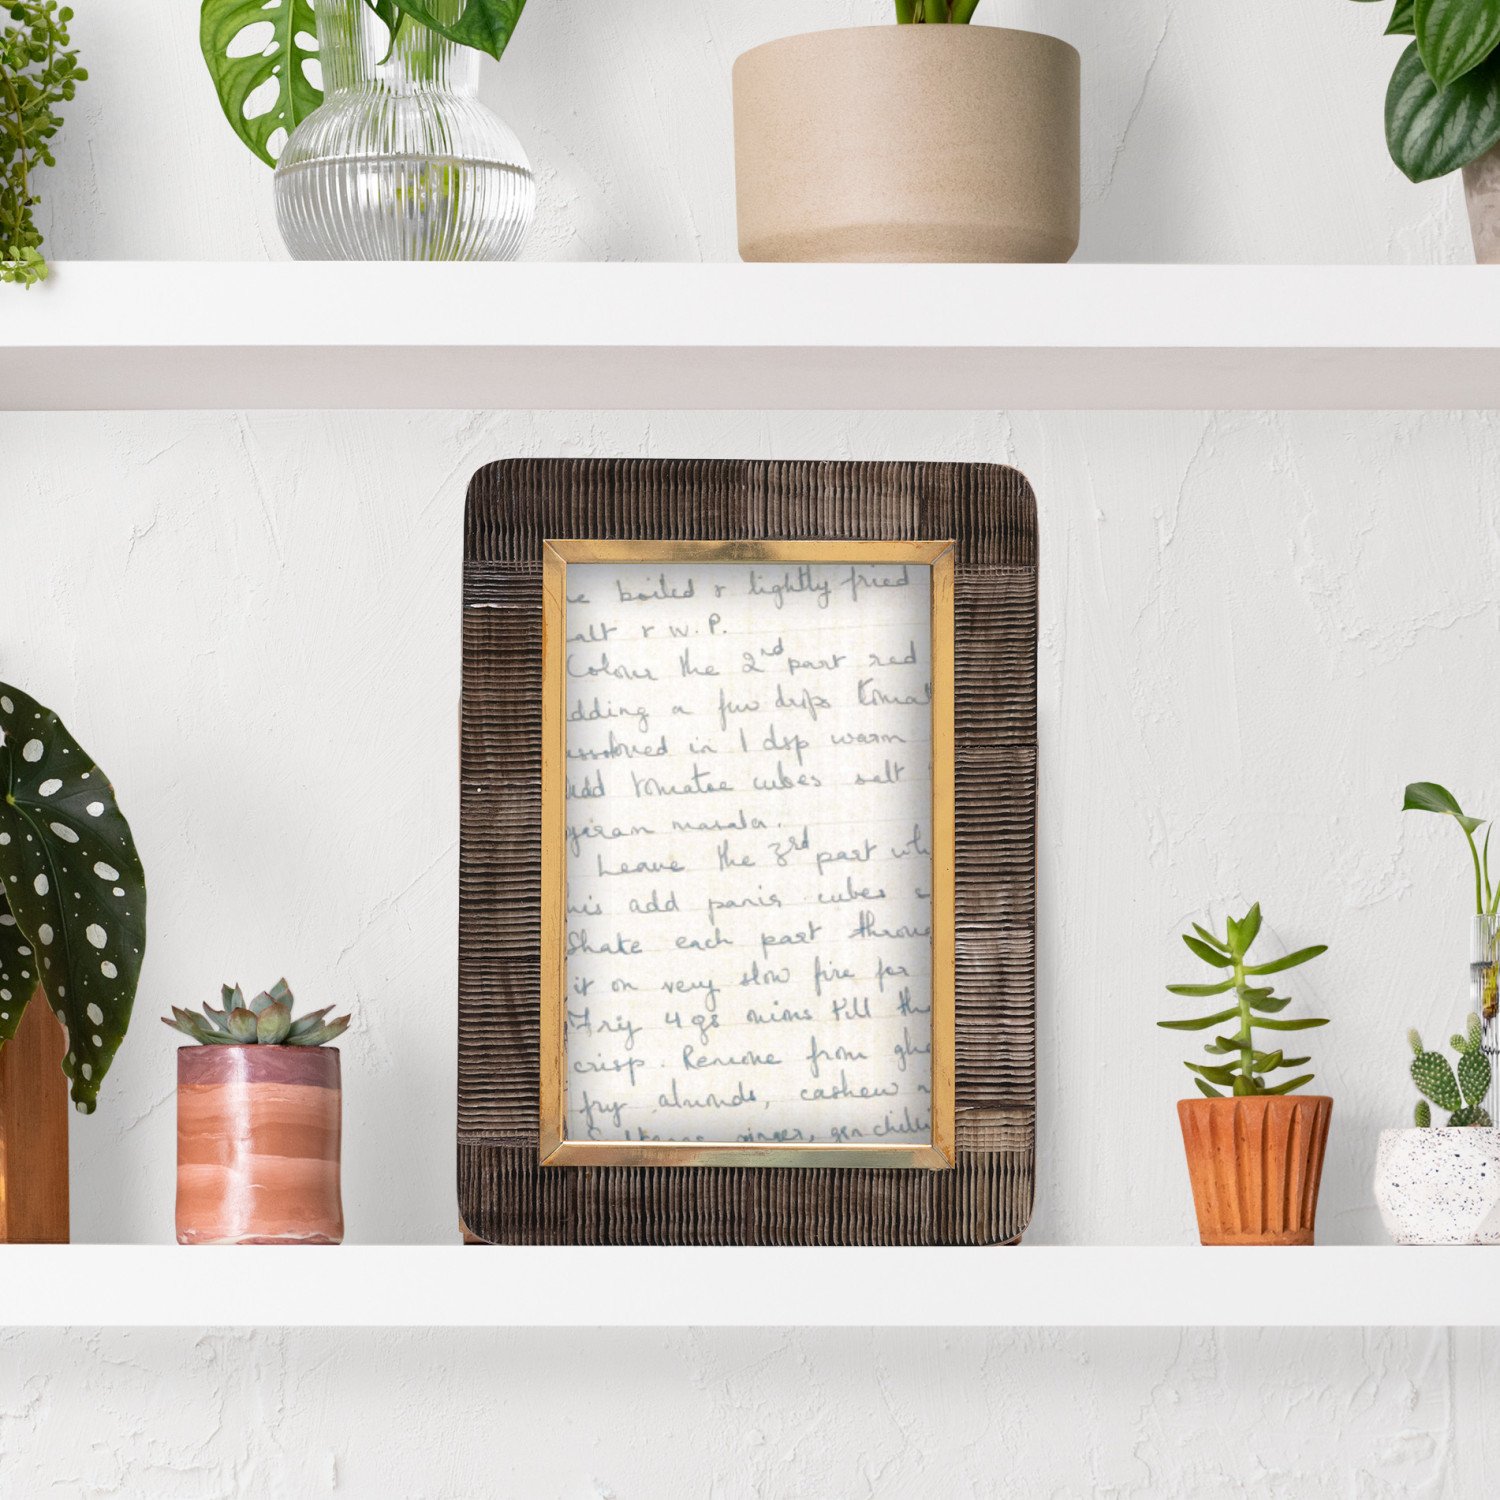 e boiled & lightly fried
alt & W.P.
Colour the 2nd part red
dding a few drops tomat
ssolved in 1 dsp warm
Add tomatoe cubes salt
garam masala.
Leave the 3rd part whi
his add panir cubes
Shake each part throu
it on very slow fire for
Fry 4 gs onions till the
crisp. Remove from ghe
fry almonds, cashew
ginger, grn chilli